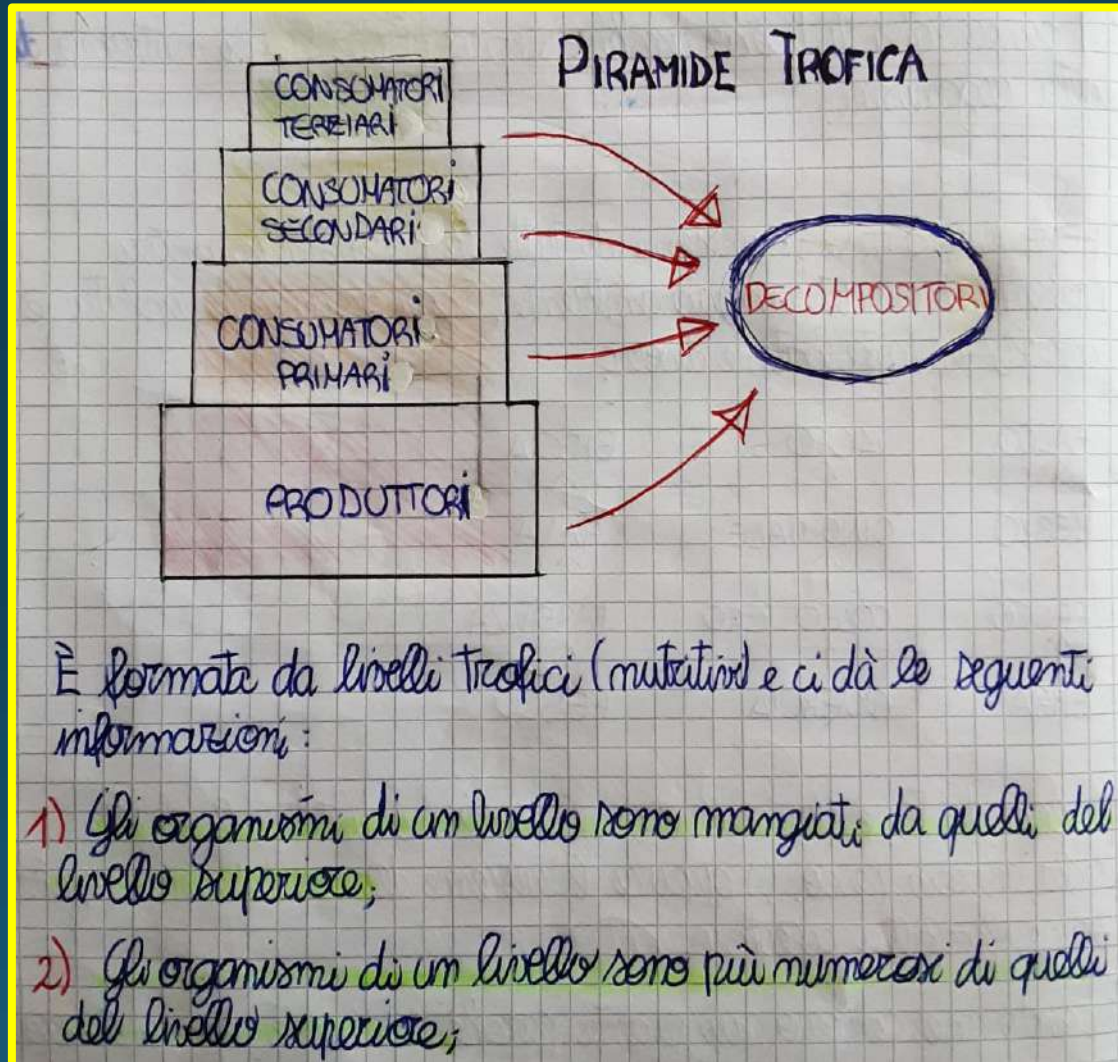 PIRAMIDE TROFICA
CONSUMATORI
TERZIARI
CONSUMATORI
SECONDARI
CONSUMATORI
PRIMARI
PRODUTTORI
DECOMPOSITORI
È formata da livelli trofici (nutritivi) e ci dà le seguenti
informazioni:
1) Gli organismi di un livello sono mangiati da quelli del
livello superiore;
2) Gli organismi di un livello sono più numerosi di quelli
del livello superiore;